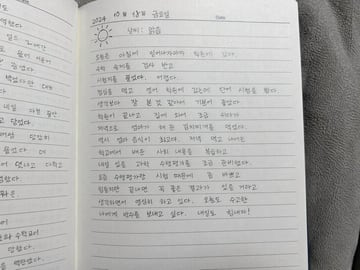 2024 10월 18일 금요일
Date
날씨: 맑음
오늘은 아침에 일어나자마자 학원에 갔다.
수학 숙제를 검사 받고
시험지를 풀었다. 어렵다.
점심을 먹고 영어 학원에 갔는데 단어 시험을 봤다.
생각보다 잘 본 것 같아서 기분이 좋았다.
학원이 끝나고 집에 와서 조금 쉬다가
저녁으로 엄마가 해 준 김치찌개를 먹었다.
역시 엄마 음식이 최고다. 저녁 먹고 나서는
학교에서 배운 사회 내용을 복습하고
내일 있을 과학 수행평가를 조금 준비했다.
요즘 수행평가랑 시험 때문에 좀 바쁘고
힘들지만 끝내면 꼭 좋은 결과가 있을 거라고
생각하면서 열심히 하고 있다. 오늘도 수고한
나에게 박수를 보내고 싶다. 내일도 힘내자!